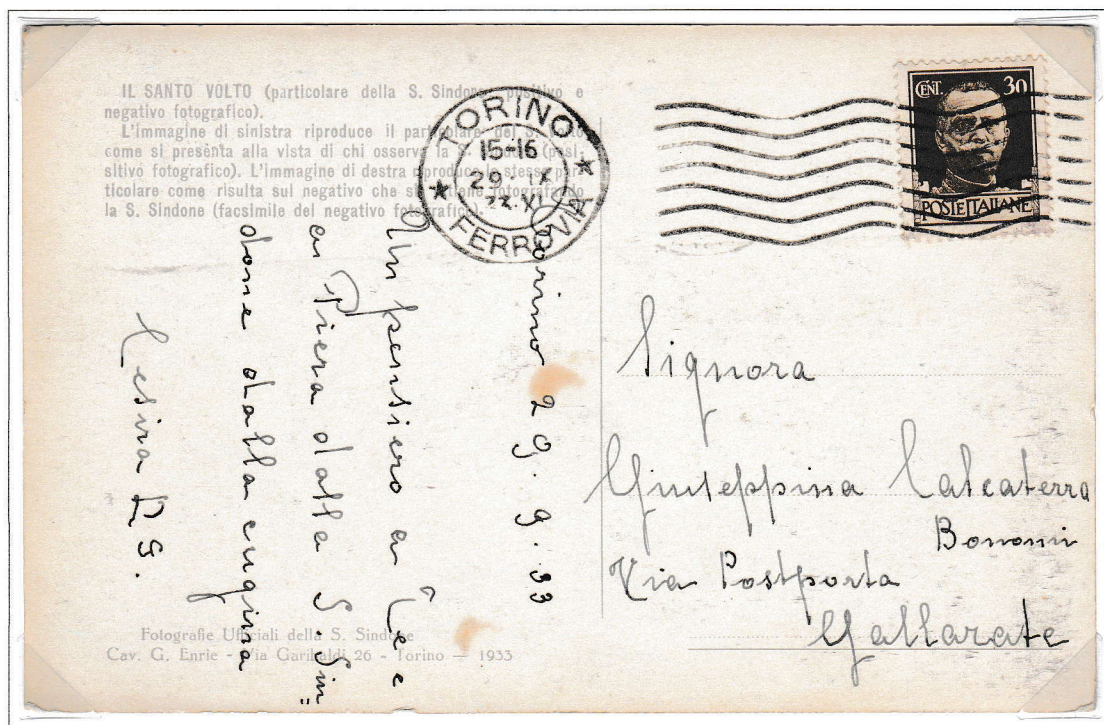 IL SANTO VOLTO (particolare della S. Sindone, positivo e
negativo fotografico).
L'immagine di sinistra riproduce il particolare del S. Volto
come si presenta alla vista di chi osserva la S. Sindone (posi-
sitivo fotografico). L'immagine di destra riproduce lo stesso par-
ticolare come risulta sul negativo che si ottiene fotografando
la S. Sindone (facsimile del negativo fotografico).
TORINO
15-16
29. IX
33. XI
FERROVIA
CENT. 30
POSTE ITALIANE
Torino 29.9.33
Un pensiero a Lei e
a Piera dalla S. Sin=
done dalla cugina
Cesira
Signora
Giuseppina Calcaterra
Bonomi
Via Postporta
Gallarate
Fotografie Ufficiali della S. Sindone
Cav. G. Enrie - Via Garibaldi 26 - Torino — 1933